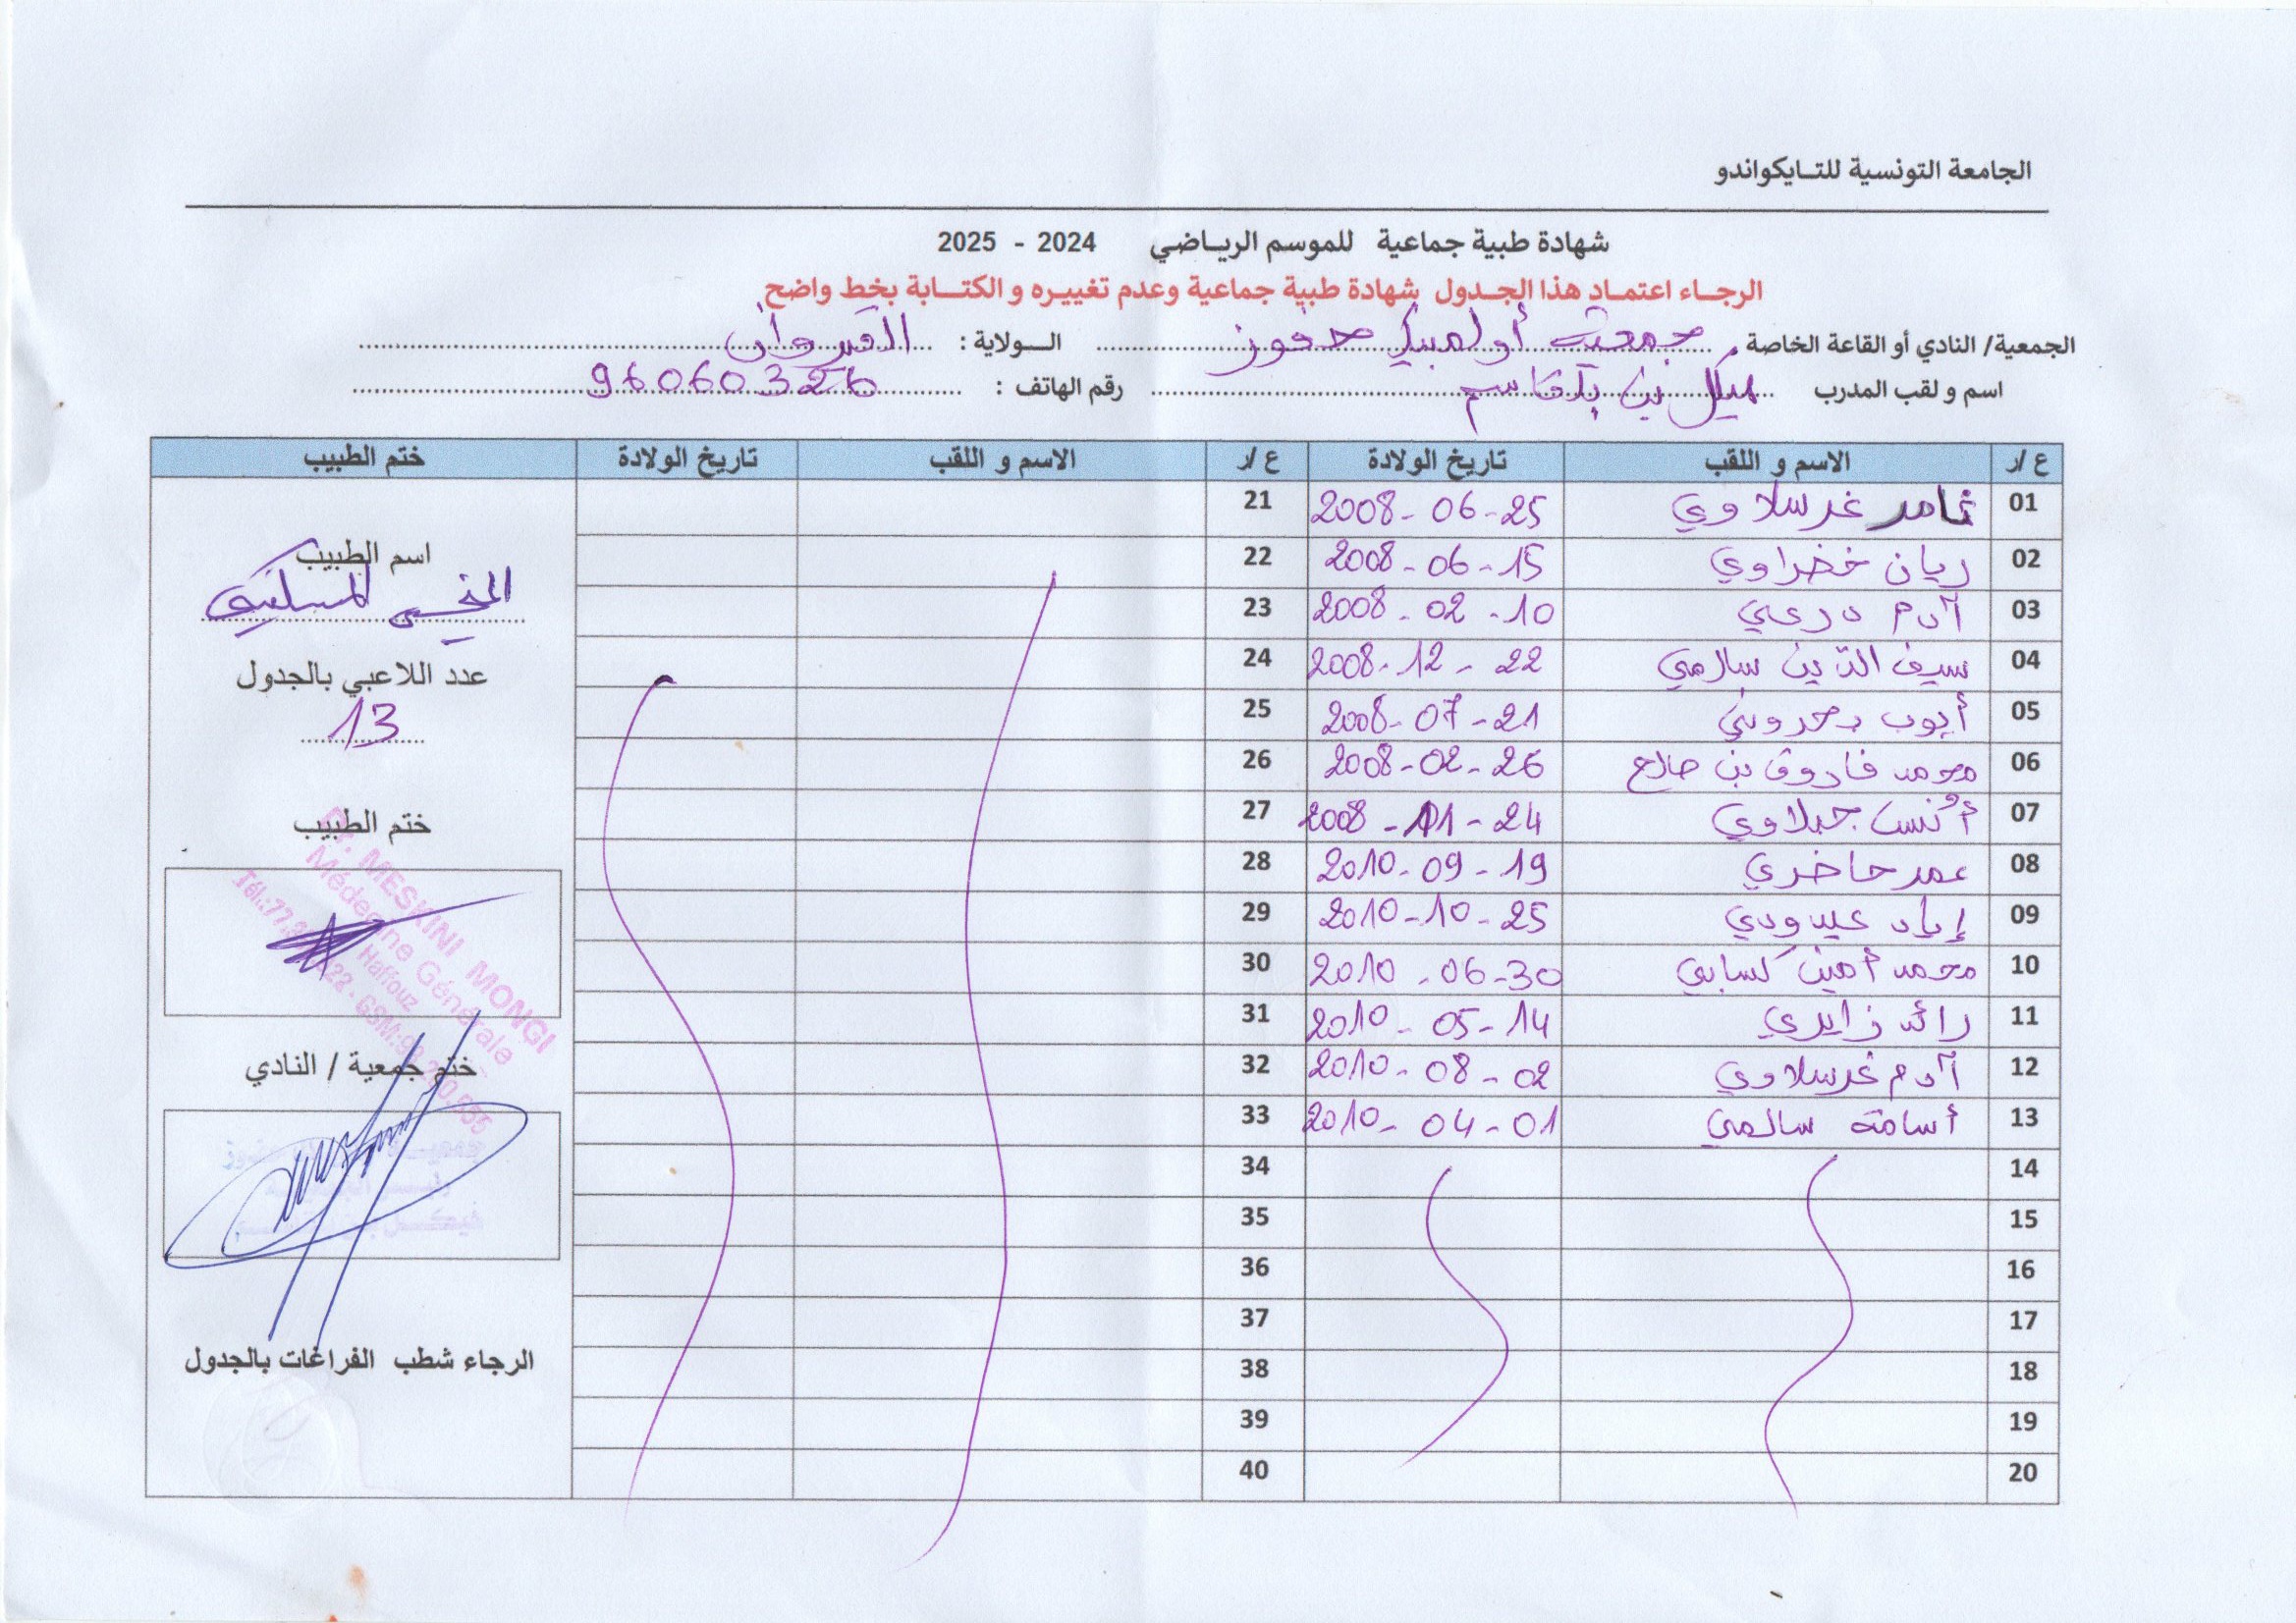 الجامعة التونسية للتـايكواندو
شهادة طبية جماعية للموسم الرياضي 2024 - 2025
الرجـاء اعتمـاد هذا الجـدول شهادة طبية جماعية وعدم تغييـره و الكتـابة بخط واضح
الجمعية/ النادي أو القاعة الخاصة جمعية أولمبيك حفوز الـولاية : القيروان
اسم و لقب المدرب هيكل بن بلقاسم رقم الهاتف : 96060326
ع /ر الاسم و اللقب تاريخ الولادة ع /ر الاسم و اللقب تاريخ الولادة ختم الطبيب
01 ثامر غرسلاوي 2008-06-25 21
02 ريان خضراوي 2008-06-15 22
03 آدم درعي 2008-02-10 23
04 سيف الدين سالمي 2008-12-22 24
05 أيوب 2008-07-21 25
06 محمد فاروق بن صالح 2008-02-26 26
07 أنس جبلاوي 2008-11-24 27
08 عمر حاضري 2010-09-19 28
09 إياد عبيدي 2010-10-25 29
10 محمد أمين كسابي 2010-06-30 30
11 رائد زايري 2010-05-14 31
12 آدم غرسلاوي 2010-08-02 32
13 أسامة سالمي 2010-04-01 33
14 34
15 35
16 36
17 37
18 38
19 39
20 40
اسم الطبيب
المنجي المسكيني
عدد اللاعبي بالجدول
13
ختم الطبيب
Dr. MESKINI MONGI
Médecine Générale
Haffouz
ختم جمعية / النادي
الرجاء شطب الفراغات بالجدول